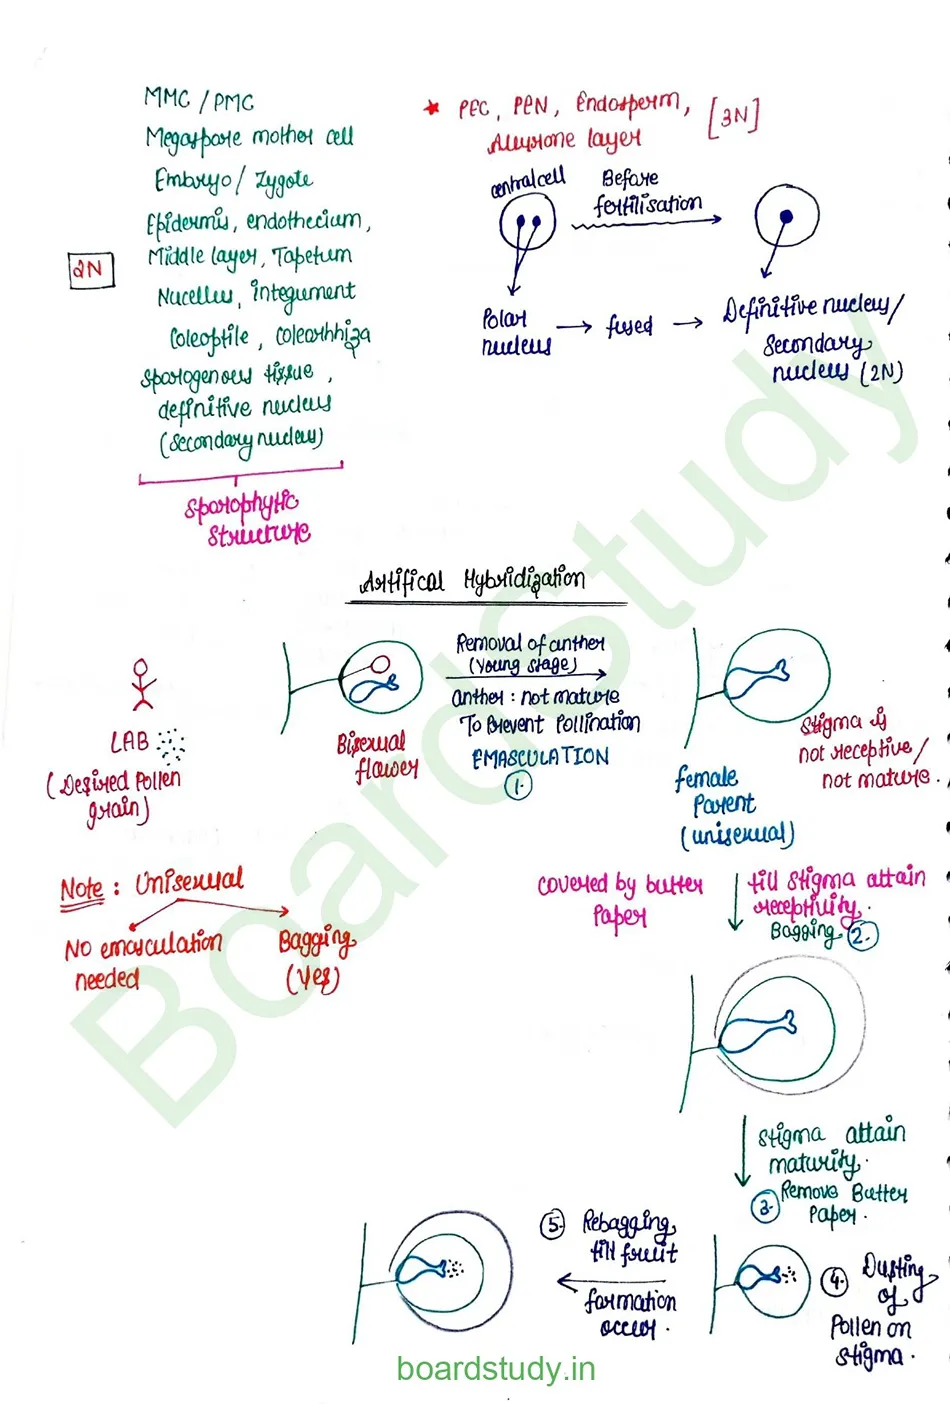 MMC / PMC
Megaspore mother cell
Embryo / Zygote
Epidermis, endothecium,
Middle layer, Tapetum
Nucellus, integument
Coleoptile, Colearhhiza
Sporogenous tissue,
definitive nucleus
(Secondary nucleus)
2N
Sporophytic
Structure
★ PEC, PEN, Endosperm,
Aleurone layer
[3N]
central cell
Before
fertilisation
Polar
nucleus
fused
Definitive nucleus/
Secondary
nucleus (2N)
Artifical Hybridization
LAB
(Desired Pollen
grain)
Bisexual
flower
Removal of anther
(Young stage)
anther : not mature
To Prevent Pollination
EMASCULATION
1.
female
Parent
(unisexual)
Stigma is
not receptive/
not mature.
Note : Unisexual
No emasculation
needed
Bagging
(Yes)
Covered by butter
Paper
till stigma attain
receptivity.
Bagging 2.
Stigma attain
maturity.
3. Remove Butter
Paper.
4. Dusting
of
Pollen on
stigma.
5. Rebagging
till fruit
formation
occur.
boardstudy.in
Boardstudy